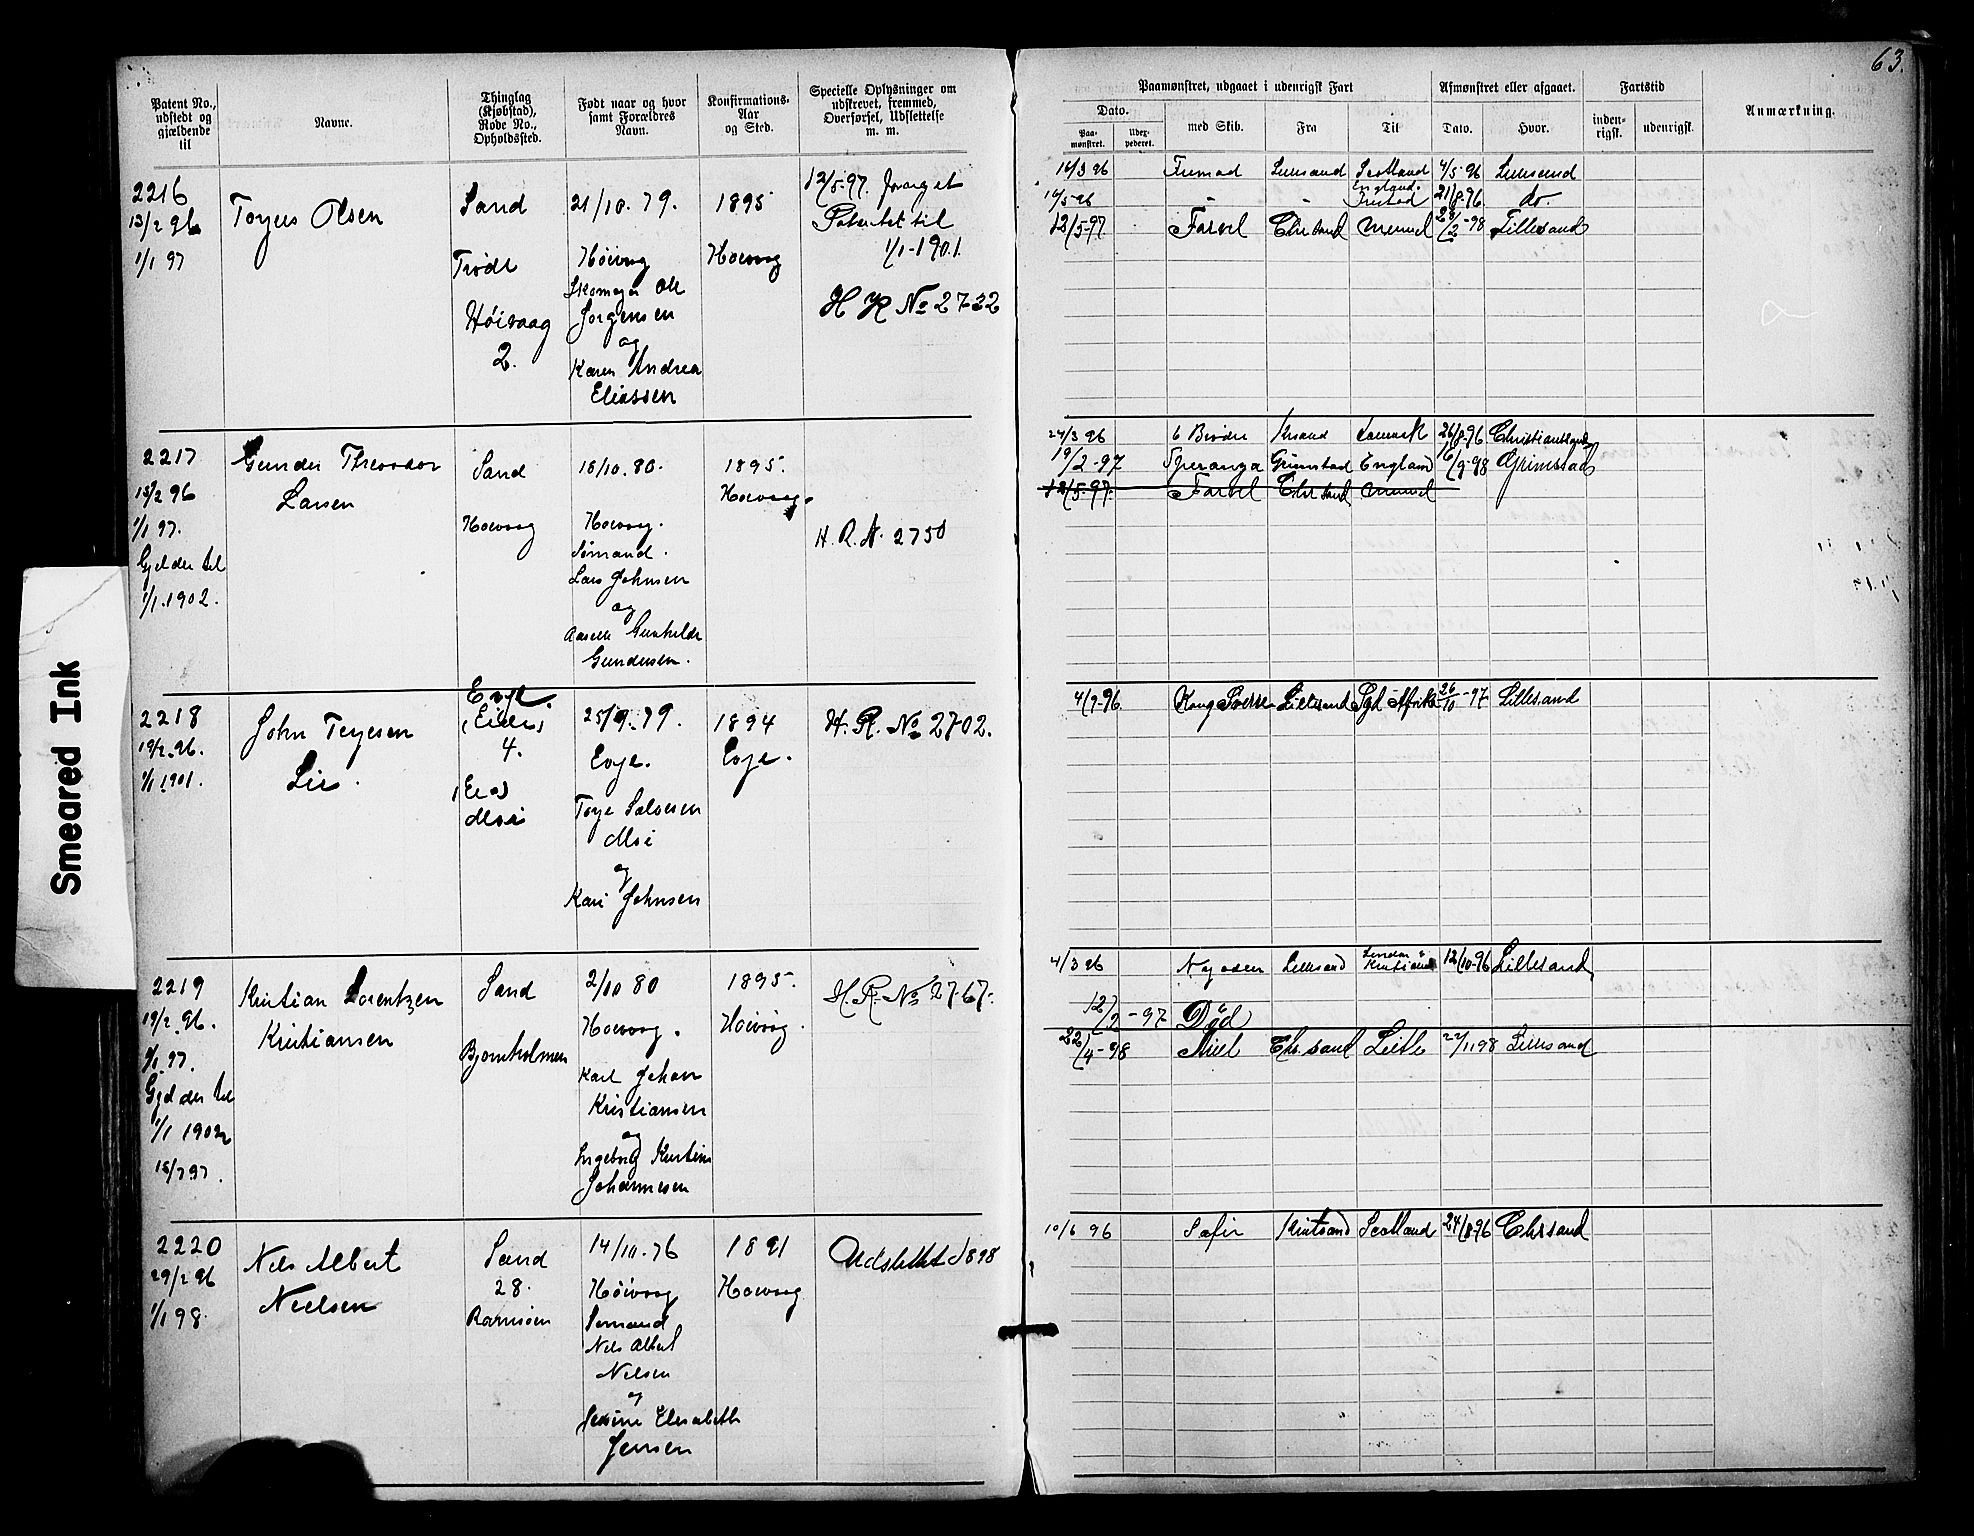 63.
Patent No., udstedt og gjældende til
Navne.
Thinglag (Kjøbstad), Rode No., Opholdssted.
Født naar og hvor samt Forældres Navn.
Konfirmations-Aar og Sted.
Specielle Oplysninger om udskrevet, fremmed, Overførsel, Udslettelse m. m.
Paamønstret, udgaaet i udenrigsk Fart
Dato.
Paa-mønstret.
Udex-pederet.
med Skib.
Fra
Til
Afmønstret eller afgaaet.
Dato.
Hvor.
Fartstid
inden-rigsk.
udenrigsk.
Anmærkning.
2216
13/2 96
1/1 97
Torjus Olsen
Sand
Trøde
Høivaag
2.
21/10. 79.
Høivaag
Skomager Ole
Jørgensen
og
Karen Andrea
Eliassen
1895
Hoivaag
12/5-97. Forenget
Patentet til
1/1-1901.
H R No 2722
14/3 96 Fremad Lillesand Scotland 4/5-96 Lillesand
14/5-96 - - England 21/8-96 do
12/5-97 Farvel Chrsand Memel 28/2-98 Lillesand
2217
13/2 96
1/1 97.
Gjelder til
1/1.1902.
Gunder Theodor
Larsen
Sand
Hoivaag
18/10. 80.
Hoivaag.
Sømand.
Lars Johnsen
og
Aasele Gunhilde
Gundersen.
1895.
Hoivaag.
H. R. N. 2750
24/3 96 6 Brødre Krsand 26/8-96 Christianssand
19/2-97 Speranza Grimstad England 16/9-98 Grimstad
12/5-97. Farvel Chrsand Memel
2218
19/2. 96.
1/1 1901.
John Terjesen
Lie.
Evje
4.
25/9. 79.
Evje.
Terje Salvesen
Moi
og
Kari Johnsen
1894
Evje.
H. R. No 2702.
4/7-96. Kong Sverre Lillesand Syd-Afrika 26/10-97 Lillesand
2219
19/2. 96.
1/1. 97.
Gjelder til
1/1 1902
15/7 97.
Kristian Lorentzen
Kristiansen
Sand
Bjornholmen
2/10 80
Hoivaag.
Karl Johan
Kristiansen
og
Ingeborg Kristine
Johannesen
1895.
Hoivåg.
H. R. No 2767.
4/3 96 Nyaden Lillesand London 12/10-96 Lillesand
12/2-97 Død
22/4-98 Chr.sand Leith 22/11 98 Lillesand
2220
29/2 96
1/1 98.
Nils Albert
Nielsen
Sand
28.
Ramsøen
14/10. 76
Høivaag
Sømand
Nils Albert
Nilsen
og
Jensine Elisabeth
Jensen
1891
Hoivaag
Udslettet 1898
10/6 96 Safir Kristsand Scotland 24/8-96 Chrsand
Smeared Ink